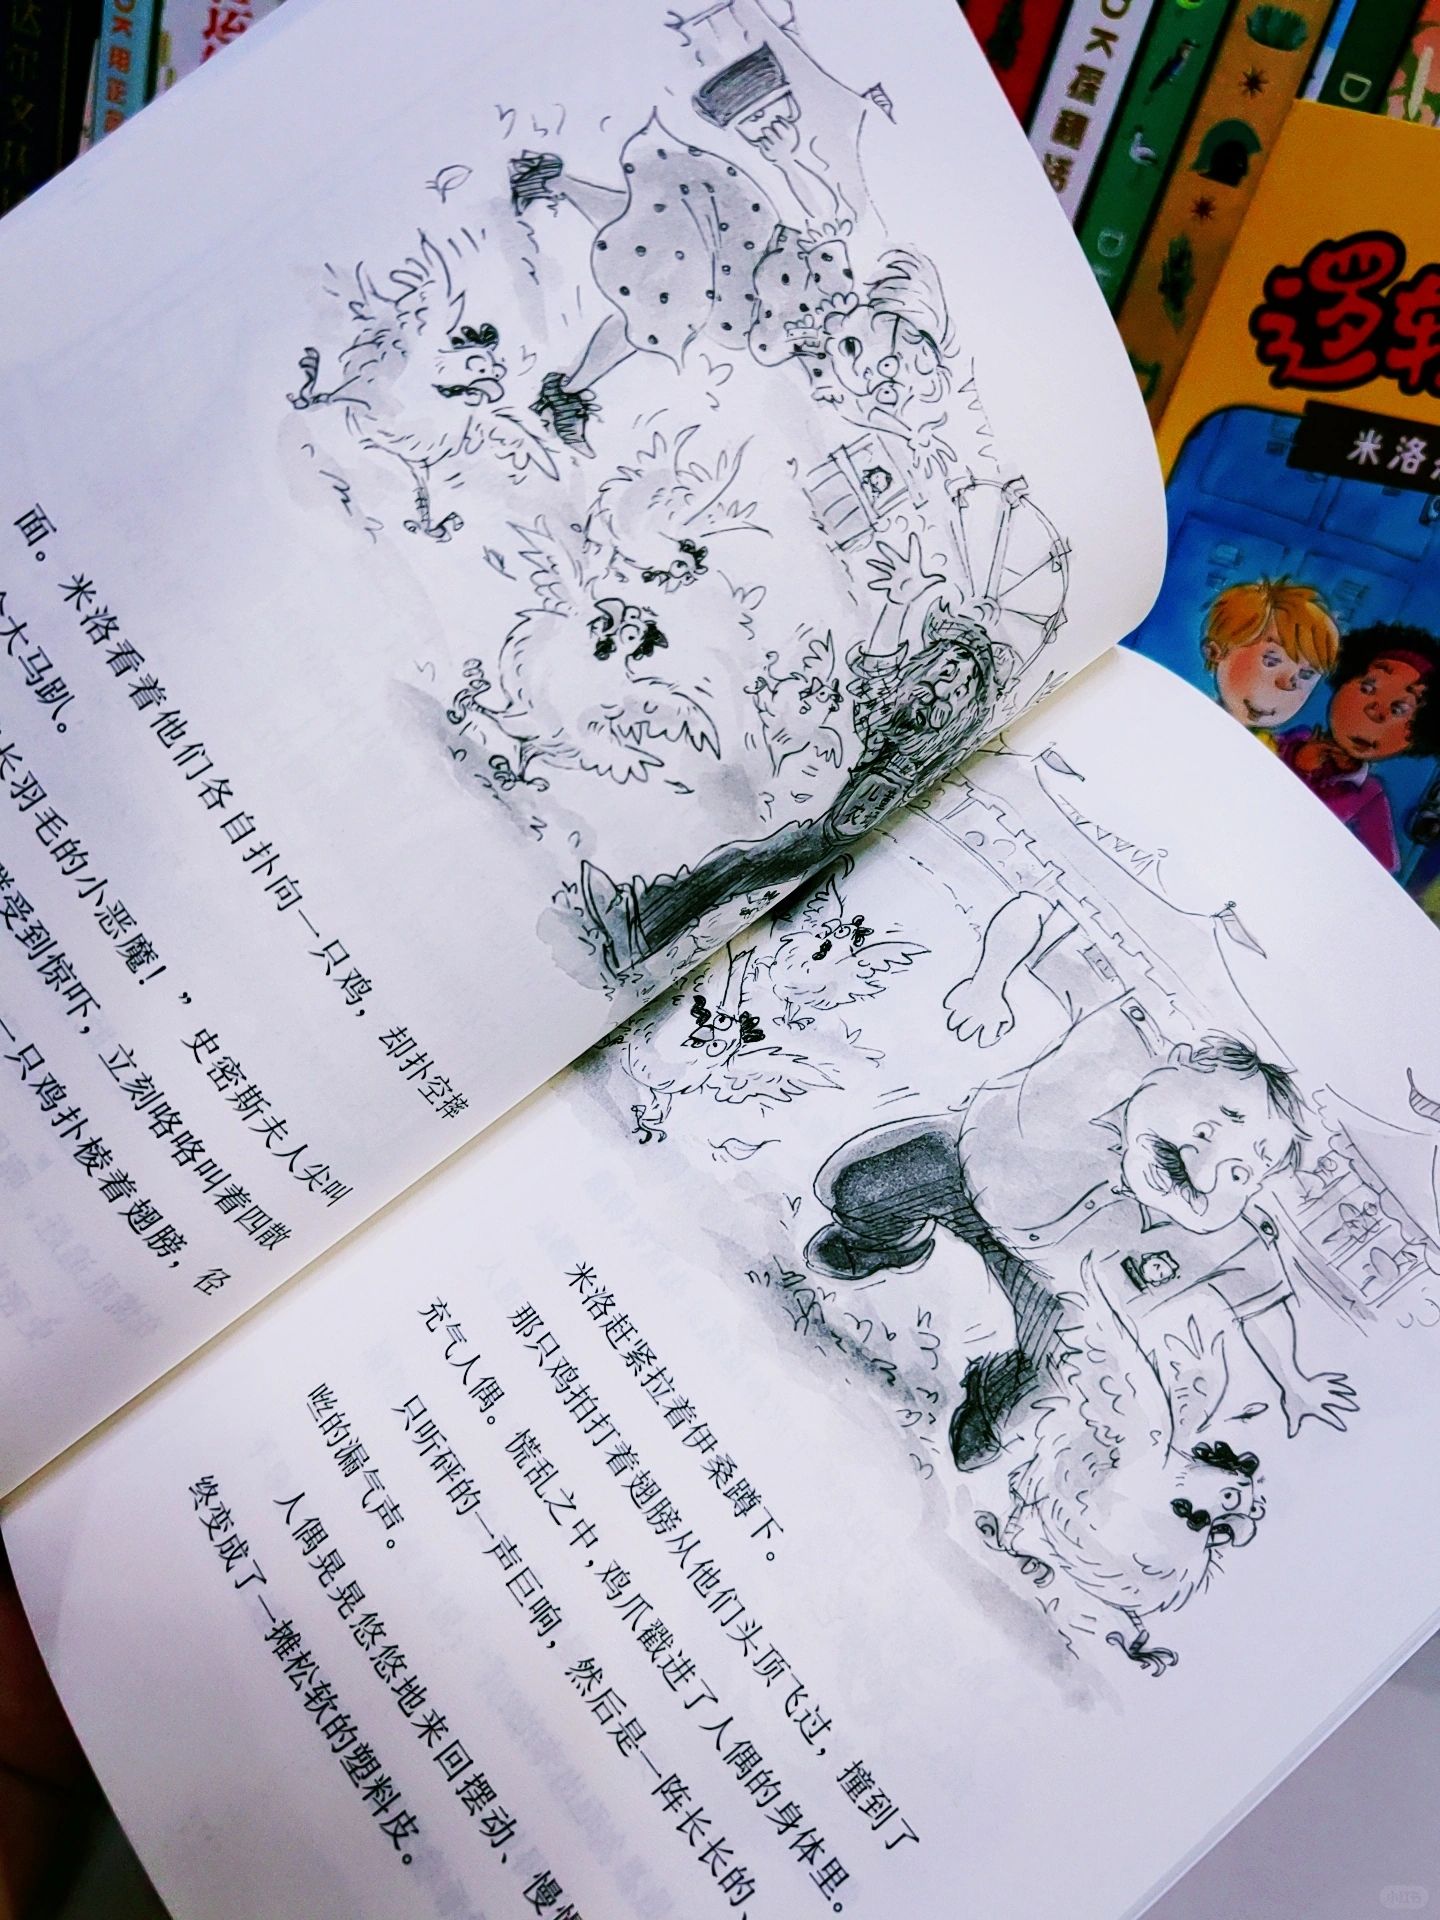 面。米洛看着他们各自扑向一只鸡，却扑空摔
大马趴。
长羽毛的小恶魔！”史密斯夫人尖叫
受到惊吓，立刻咯咯叫着四散
一只鸡扑棱着翅膀，径
儿童
农场
米洛赶紧拉着伊桑蹲下。
那只鸡拍打着翅膀从他们头顶飞过，撞到了
充气人偶。慌乱之中，鸡爪戳进了人偶的身体里。
只听砰的一声巨响，然后是一阵长长的、
咝的漏气声。
人偶晃晃悠悠地来回摆动、慢慢
终变成了一摊松软的塑料皮。
逻辑
米洛
小红书